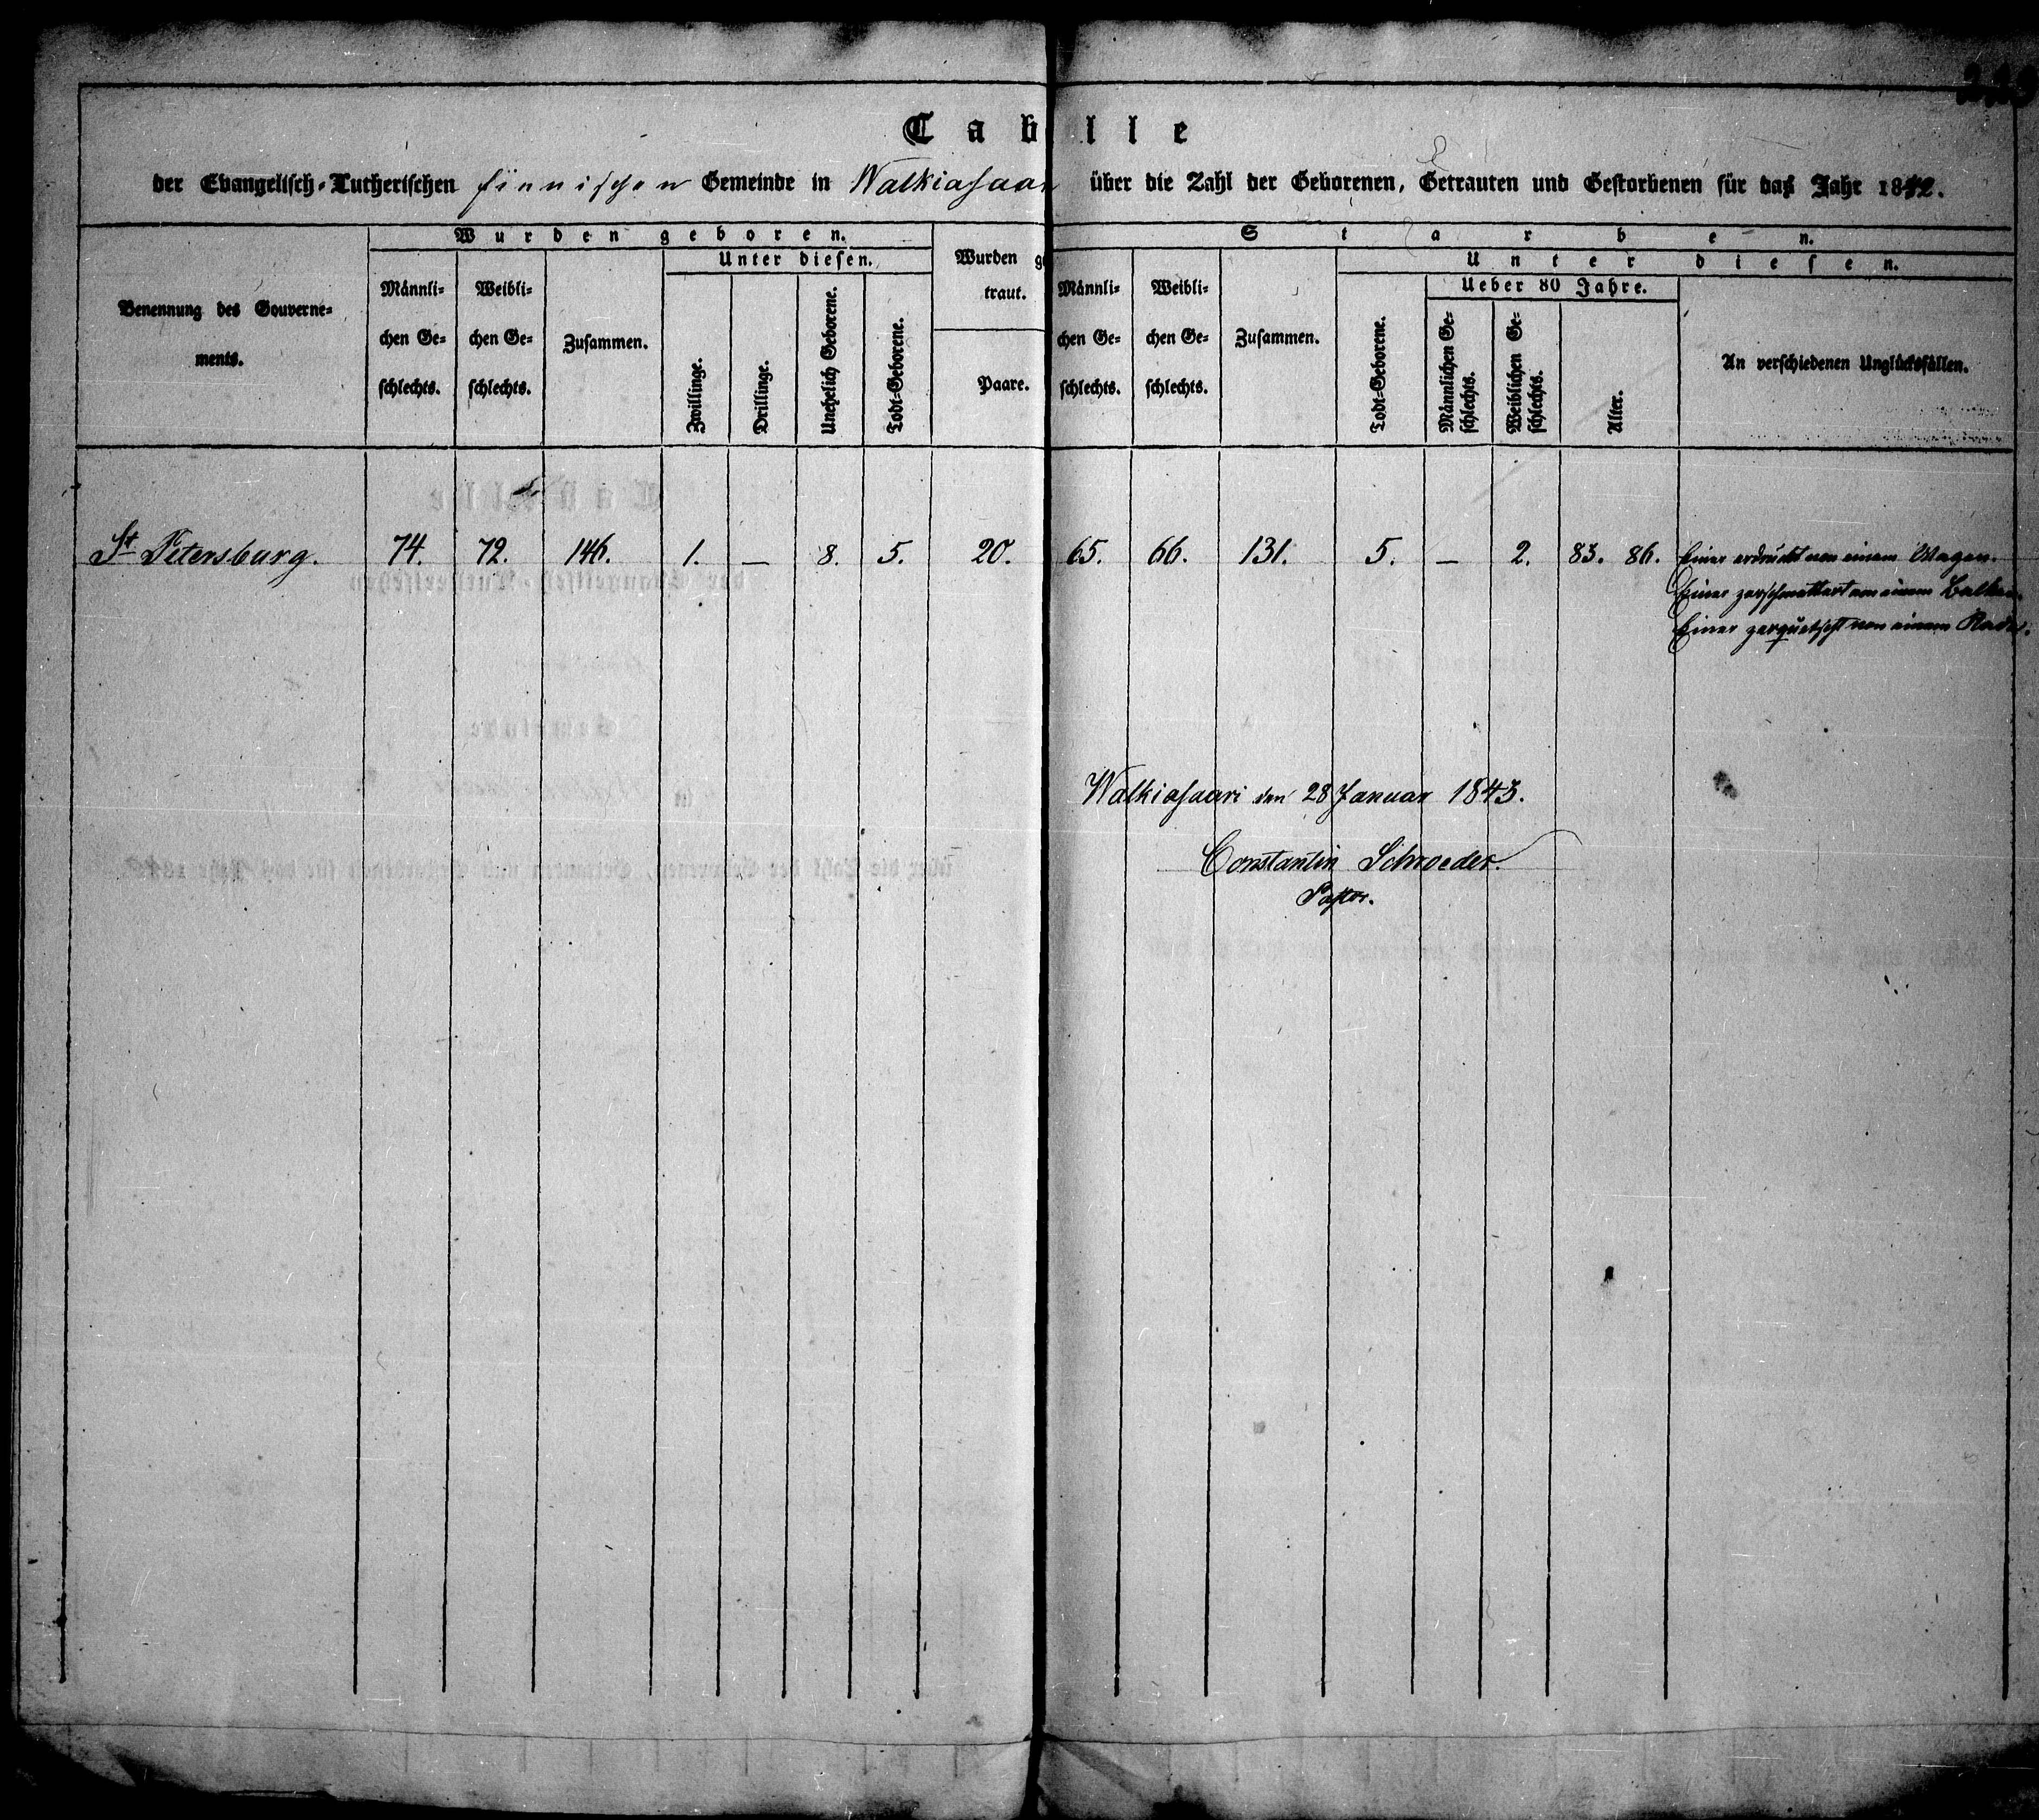 Tabelle
der Evangelisch-Lutherischen finnischen Gemeinde in Walkiasaari über die Zahl der Geborenen, Getrauten und Gestorbenen für das Jahr 1842.
Benennung des Gouverne-
ments.
Wurden geboren.
Männli-
chen Ge-
schlechts.
Weibli-
chen Ge-
schlechts.
Zusammen.
Unter diesen.
Zwillinge.
Drillinge.
Unehelich Geborene.
Todt-Geborene.
Wurden ge
traut.
Paare.
Starben.
Männli-
chen Ge-
schlechts.
Weibli-
chen Ge-
schlechts.
Zusammen.
Unter diesen.
Todt-Geborene.
Ueber 80 Jahre.
Männlichen Ge-
schlechts.
Weiblichen Ge-
schlechts.
Alter.
An verschiedenen Unglücksfällen.
St Petersburg. 74. 72. 146. 1. — 8. 5. 20. 65. 66. 131. 5. — 2. 83. 86. Einer erdrückt von einem Wagen.
Einer zerschmettert von einem Balken.
Einer zerquetscht von einem Rade.
Walkiasaari den 28 Januar 1843.
Constantin Schroeder.
Pastor.